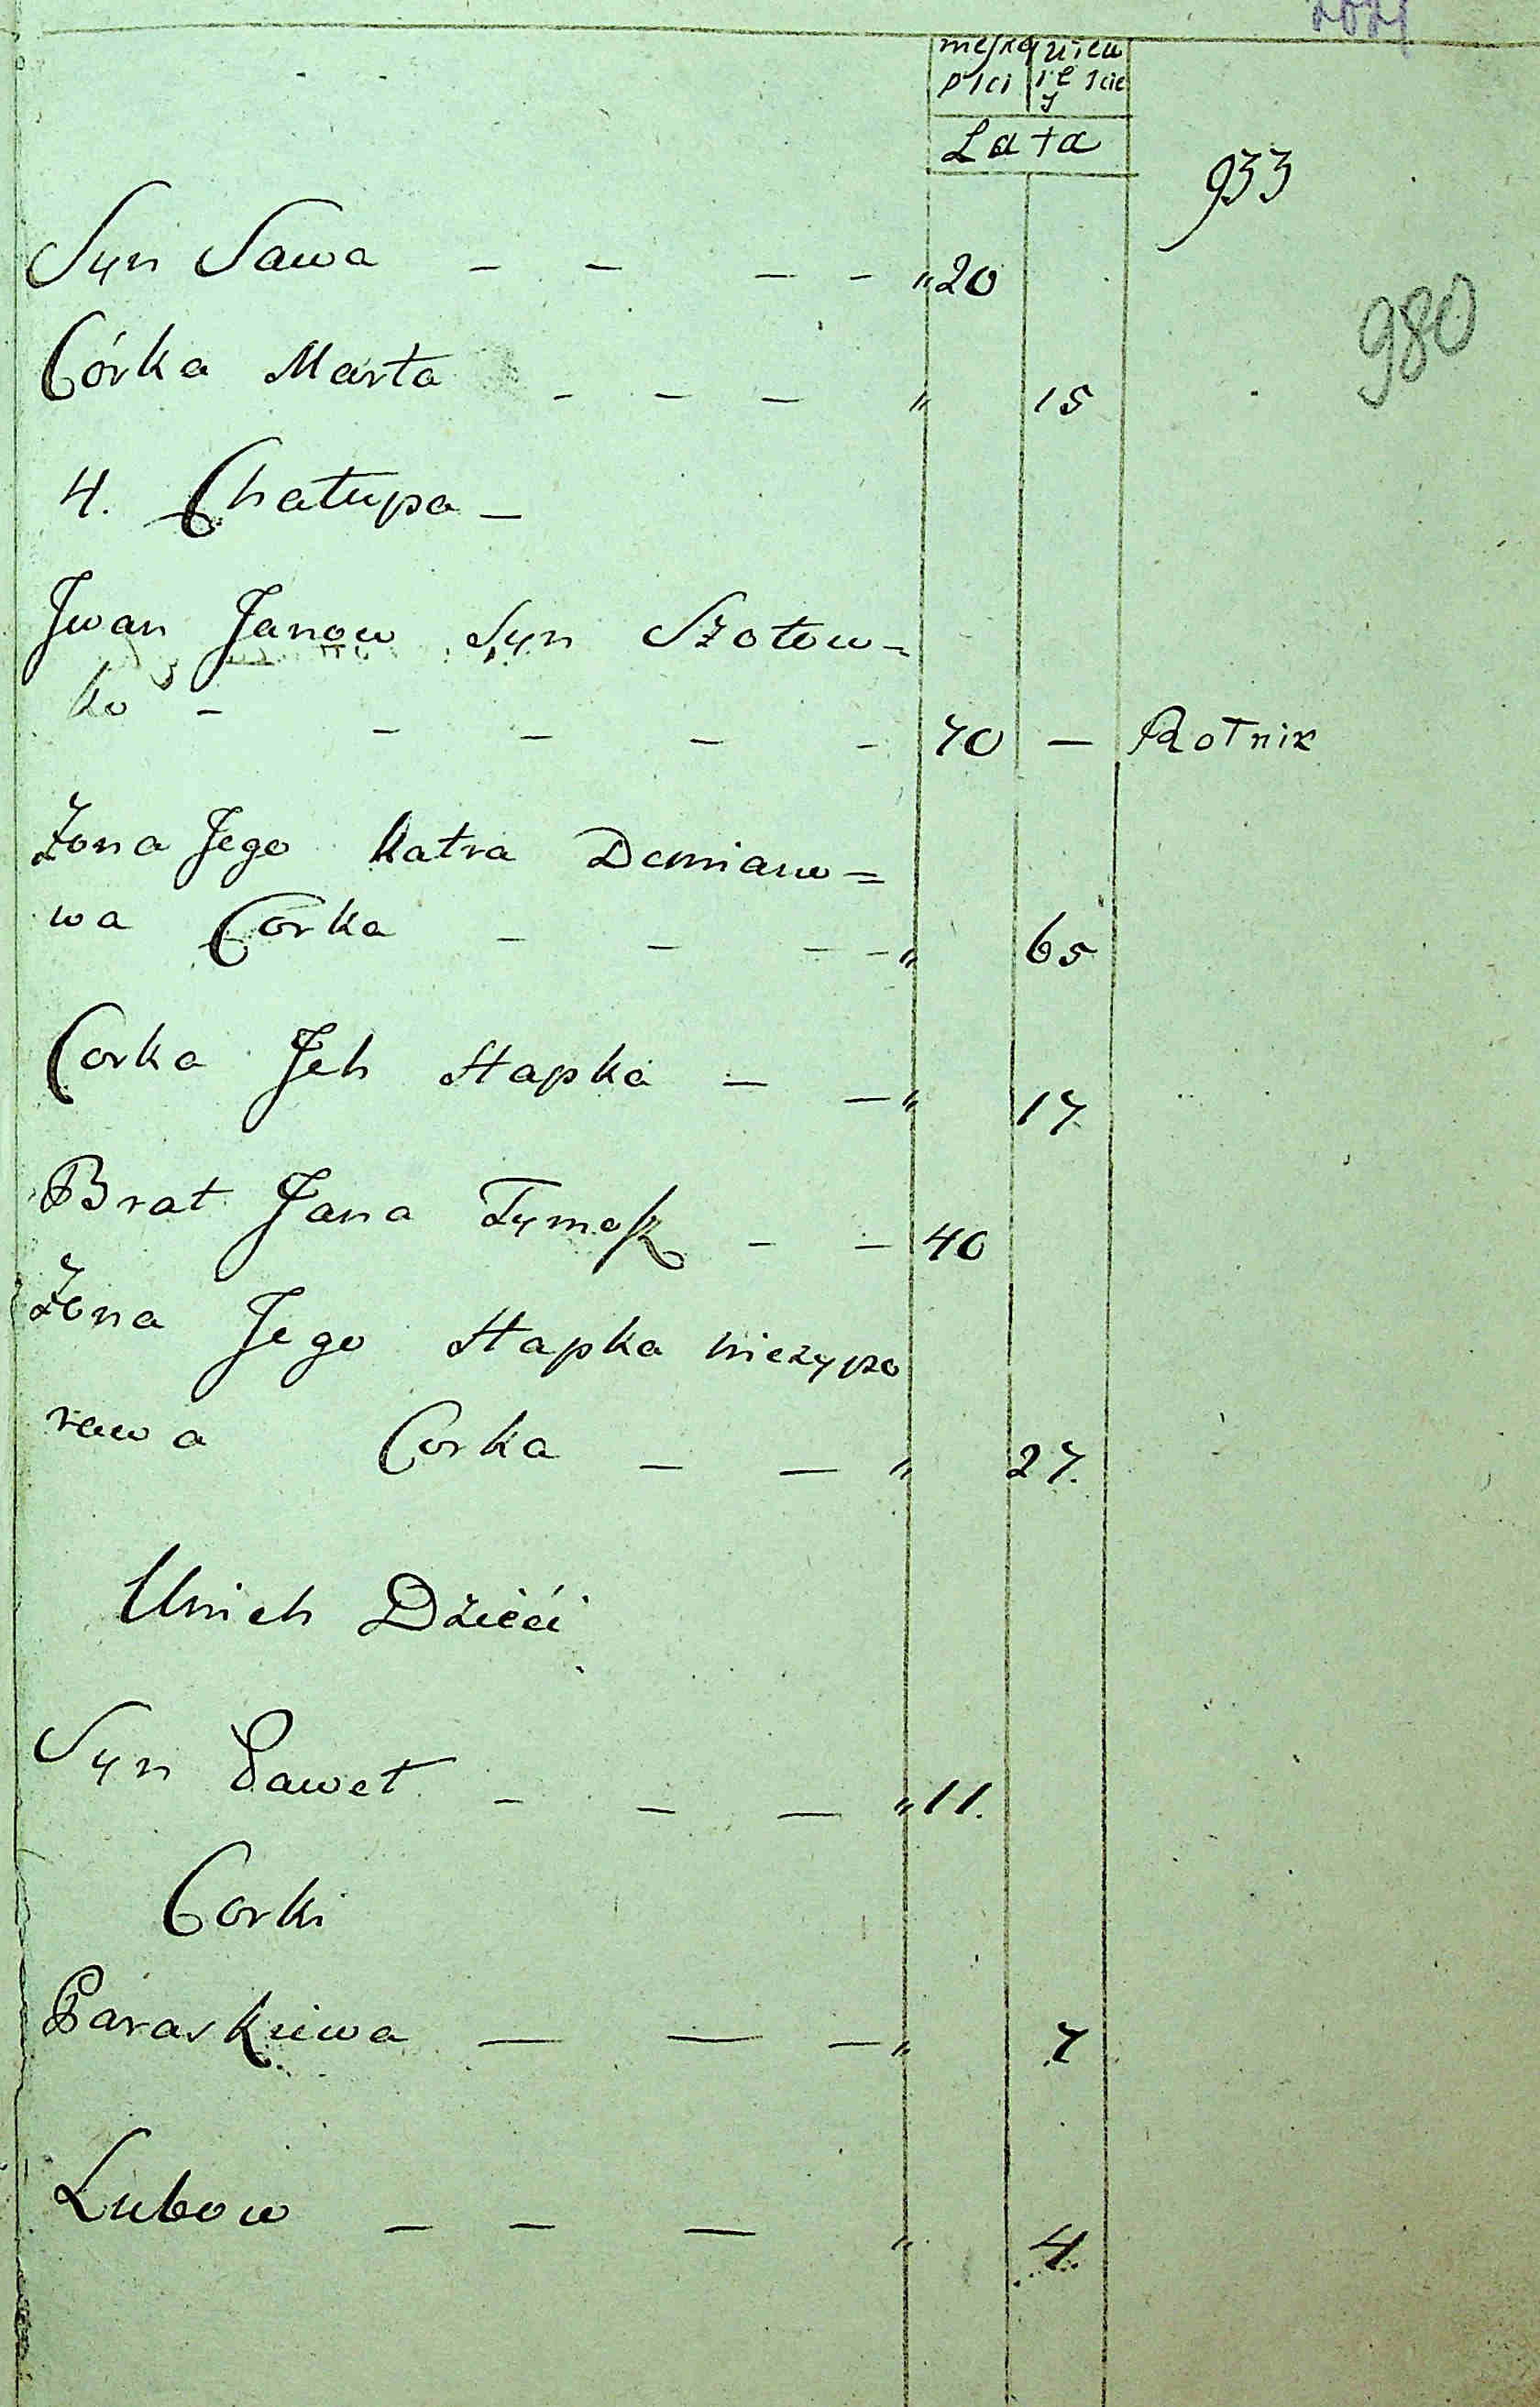 męską niew
płci ieście
y
Lata
933
Syn Sawa — — — — " 20
980
Córka Marta — — — " 15
4. Chałupa —
Jwan Janow Syn Szotow=
ko — — — — — 70 — Rolnik
Żona Jego Katra Demianw=
wa Corka — — — — " 65
Corka Jch Hapka — — " 17
Brat Jana Tymosz — — 40
Żona Jego Hapka
Corka — — " 27.
Unich Dzieći
Syn Paweł — — — " 11.
Corki
Paraskiewa — — — " 7
Lubow — — — " 4.